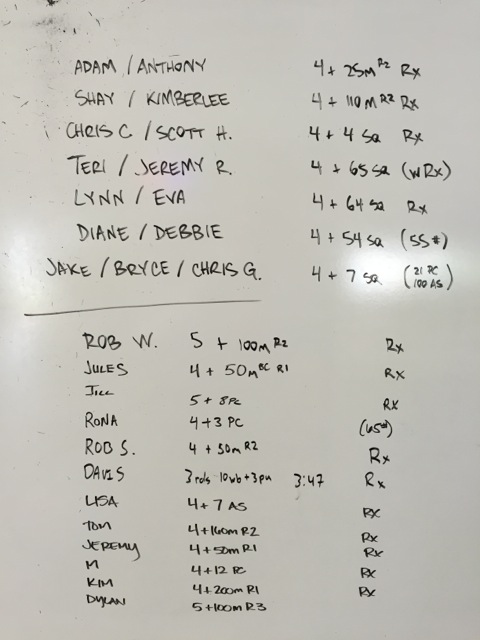 ADAM / ANTHONY 4 + 25M R2 Rx
SHAY / KIMBERLEE 4 + 110 M R2 Rx
CHRIS C / SCOTT H. 4 + 4 SQ Rx
TERI / JEREMY R. 4 + 65 SQ (WRx)
LYNN / EVA 4 + 64 SQ Rx
DIANE / DEBBIE 4 + 54 SQ (55#)
JAKE / BRYCE / CHRIS G. 4 + 7 SQ (21 PC 100 AS)
ROB W. 5 + 100M R2 Rx
JULES 4 + 50M BC R1 Rx
JILL 5 + 8PC Rx
RONA 4+3 PC (65#)
ROB S. 4 + 50M R2 Rx
DAVIS 3rds 10wb+3pu 3:47 Rx
LISA 4+7 AS Rx
TOM 4+160M R2 Rx
JEREMY 4+50M R1 Rx
M 4+12 PC Rx
KIM 4+200M R1 Rx
DYLAN 5+100M R3